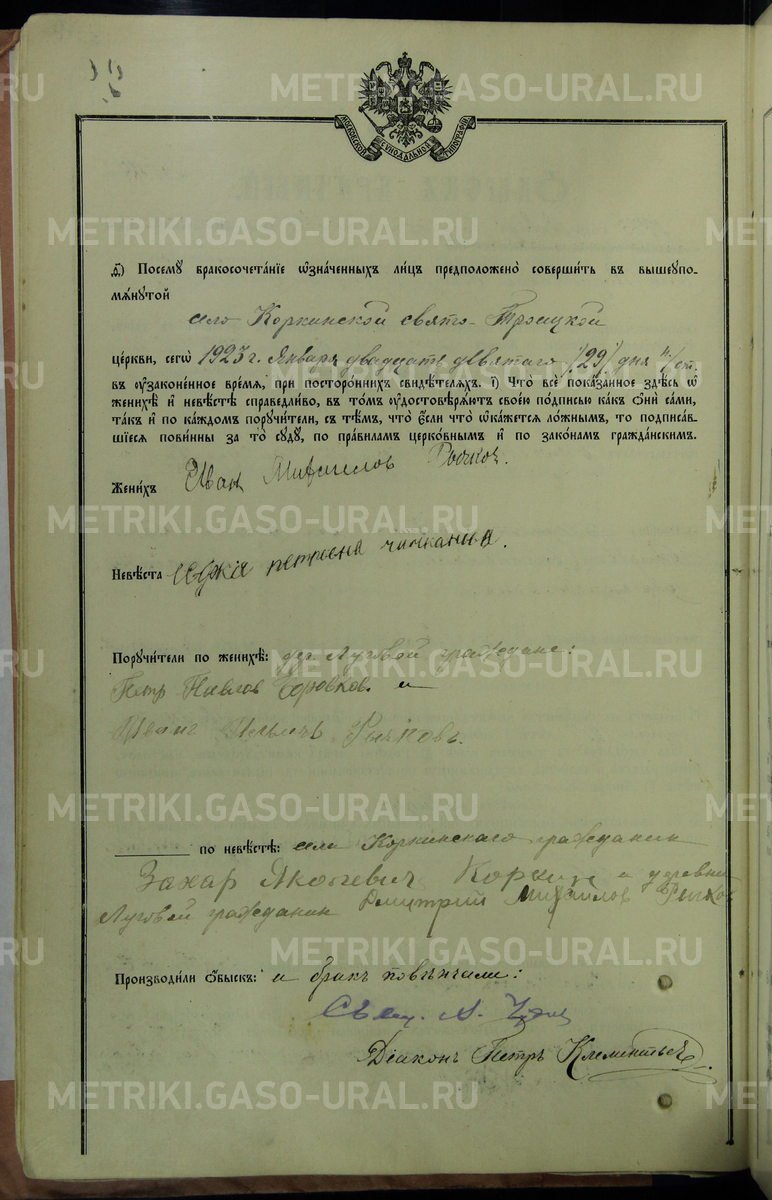 METRIKI.GASO-URAL.RU
МОСКОВСКОЙ СУНОДАЛЬНОЙ ТИПОГРАФІИ
Посемꙋ бракосочета́нїе ѡ҆зна́ченныхъ ли́цъ предположено̀ соверши́ть въ вышеꙋпо-
мѧ́нꙋтой
село Коркинской свято-Троицкой
це́ркви, сегѡ̀ 1923 г. Января двадцать девятаго /29/ дня н/ст.
въ ᲂу҆зако́ненное вре́мѧ, при посторо́ннихъ свидѣ́телѧхъ. і҃) Что̀ всѐ пока́занное здѣ́сь ѡ҆
женихѣ̀ и҆ невѣ́стѣ справедли́во, въ то́мъ ᲂу҆достовѣрѧ́ютъ свое́ю по́дписью ка́къ ѻ҆нѝ са́ми,
та́къ и҆ по ка́ждомъ порꙋчи́тели, съ тѣ́мъ, что̀ є҆́сли что̀ ѡ҆ка́жетсѧ ло́жнымъ, то подписа́в-
шїесѧ пови́нны за то̀ сꙋдꙋ̀, по пра́виламъ церко́внымъ и҆ по зако́намъ гражда́нскимъ.
Жени́хъ Иван Михаилов
Невѣ́ста петровна
Порꙋчи́тели по женихѣ̀: дер. Луговой граждане:
Петр Павлов и
Иванъ Рычковъ.
по невѣ́стѣ: села Коркинскаго гражданин
Захар Якоглевич Коркин и деревни
Луговой гражданин Дмитрий Михаилов Рычков
Производи́ли ѻ҆́быскъ: и бракъ повѣнчали:
Свящ. А.
Діаконъ Петръ Клементьев